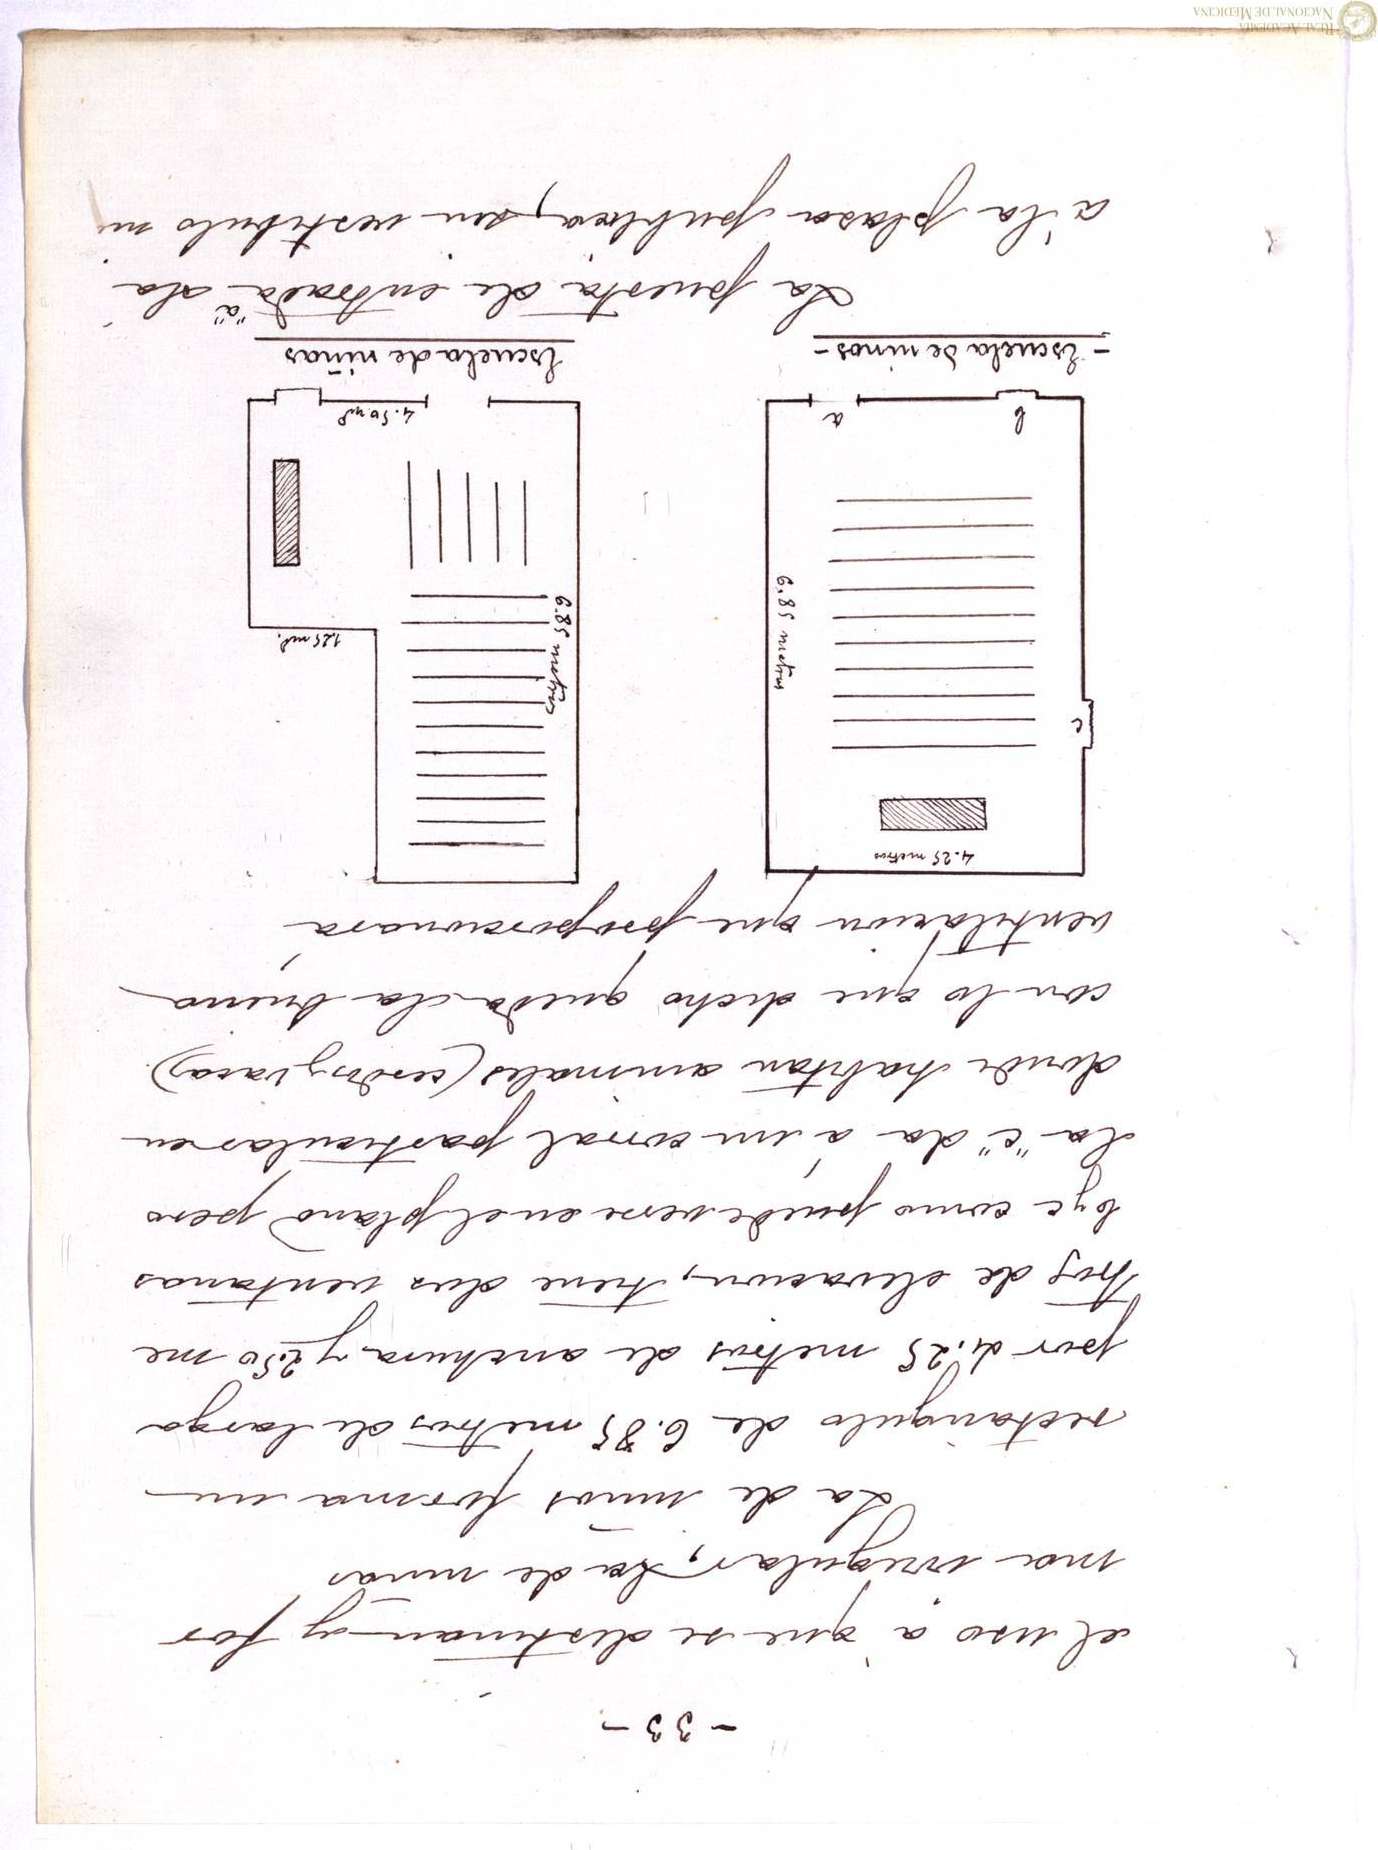 - 33 -
el uso a que se destinan y for
ma irregular, la de niñas
La de niños forma un
rectangulo de 6.85 metros de largo
por 4.25 metros de anchura y 2.50 me
tros de elevacion, tiene dos ventanas
b y c como puede verse en el plano pero
la "c" da á un corral particular en
donde habitan animales (cerdos y vacas)
con lo que dicho queda la buena
ventilacion que proporcionara
4.25 metros
c
6,85 metros
b
a
- Escuela de niños -
6.85 metros
1.25 mt.
4.50 mt
Escuela de niñas
La puerta de entrada "a" da
a la plaza publica, sin vestibulo ni
REAL ACADEMIA
NACIONAL DE MEDICINA